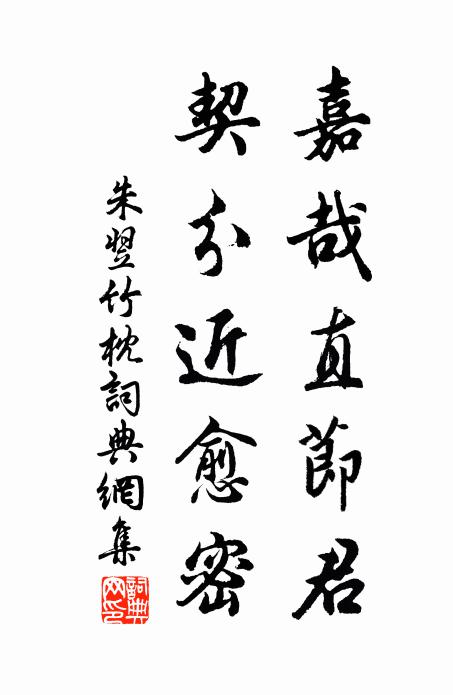 嘉哉直節君
契分近愈密
朱翌竹枕詞典網集
詞典网印